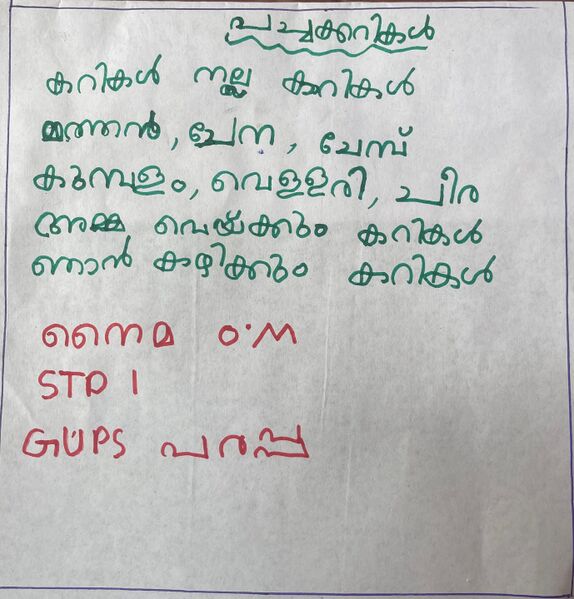 പച്ചക്കറികൾ
കറികൾ നല്ല കറികൾ
മത്തൻ, ചേന, ചേമ്പ്
കുമ്പളം, വെള്ളരി, ചീര
അമ്മ വെയ്ക്കും കറികൾ
ഞാൻ കഴിക്കും കറികൾ
നൈമ ഠ.M
STD 1
GUPS പരപ്പ